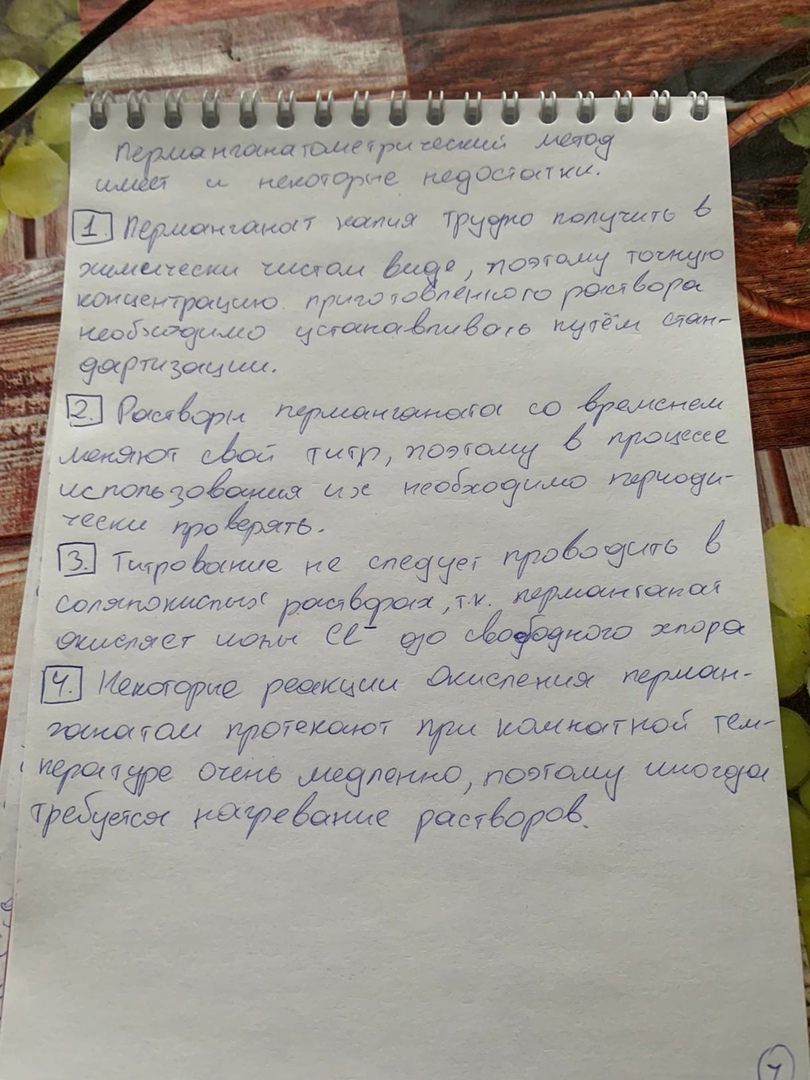 Перманганатометрический метод
имеет и некоторые недостатки.
1. Перманганат калия трудно получить в
химически чистом виде, поэтому точную
концентрацию приготовленного раствора
необходимо устанавливать путём стан-
дартизации.
2. Растворы перманганата со временем
меняют свой титр, поэтому в процессе
использования их необходимо периоди-
чески проверять.
3. Титрование не следует проводить в
солянокислых растворах, т.к. перманганат
окисляет ионы Cl⁻ до свободного хлора
4. Некоторые реакции окисления перман-
ганатом протекают при комнатной тем-
пературе очень медленно, поэтому иногда
требуется нагревание растворов.